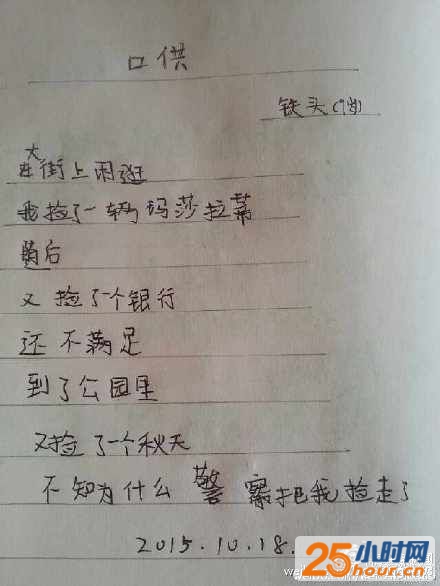 口供
铁头(9岁)
在大街上闲逛
我捡了一辆玛莎拉蒂
随后
又捡了个银行
还不满足
到了公园里
又捡了一个秋天
不知为什么警察把我捡走了
2015.10.18.
25小时网
25hour.cn